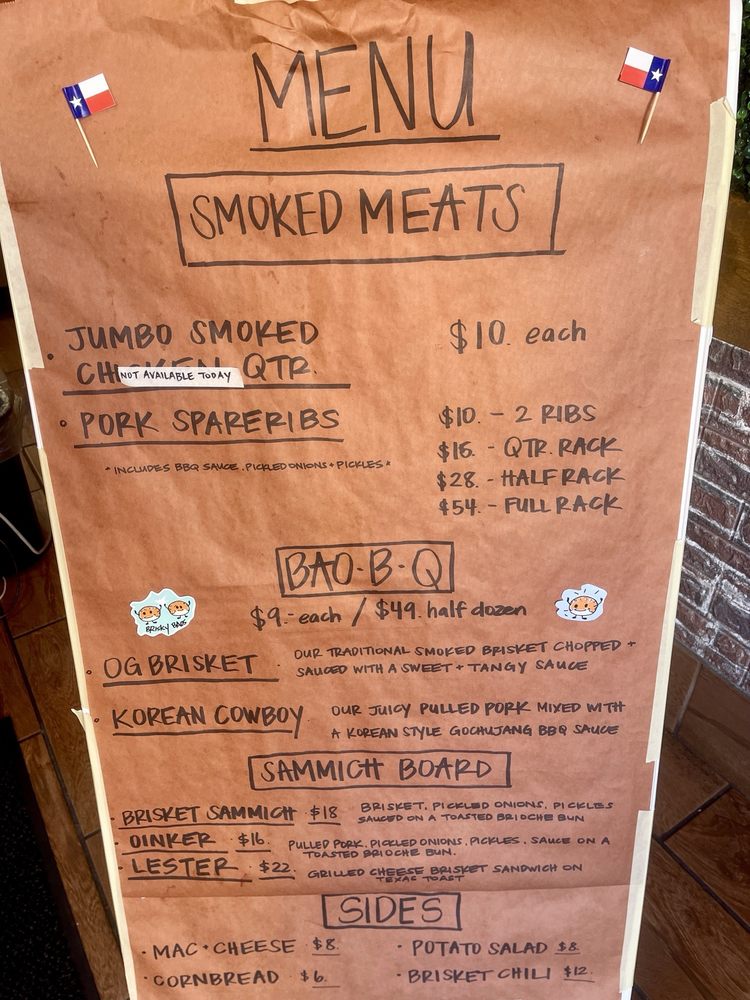 MENU
SMOKED MEATS
• JUMBO SMOKED $10. each
CHICKEN QTR.
NOT AVAILABLE TODAY
• PORK SPARERIBS $10. - 2 RIBS
$16. - QTR. RACK
* INCLUDES BBQ SAUCE, PICKLED ONIONS + PICKLES *
$28. - HALF RACK
$54. - FULL RACK
BAO·B·Q
$9.- each / $49. half dozen
BRISKY BAOS
• OG BRISKET OUR TRADITIONAL SMOKED BRISKET CHOPPED +
SAUCED WITH A SWEET + TANGY SAUCE
• KOREAN COWBOY OUR JUICY PULLED PORK MIXED WITH
A KOREAN STYLE GOCHUJANG BBQ SAUCE
SAMMICH BOARD
• BRISKET SAMMICH · $18 BRISKET, PICKLED ONIONS, PICKLES
SAUCED ON A TOASTED BRIOCHE BUN
• OINKER · $16. PULLED PORK, PICKLED ONIONS, PICKLES, SAUCE ON A
TOASTED BRIOCHE BUN.
• LESTER · $22. GRILLED CHEESE BRISKET SANDWICH ON
TEXAS TOAST
SIDES
• MAC + CHEESE $8. • POTATO SALAD $8.
• CORNBREAD · $6. • BRISKET CHILI $12.